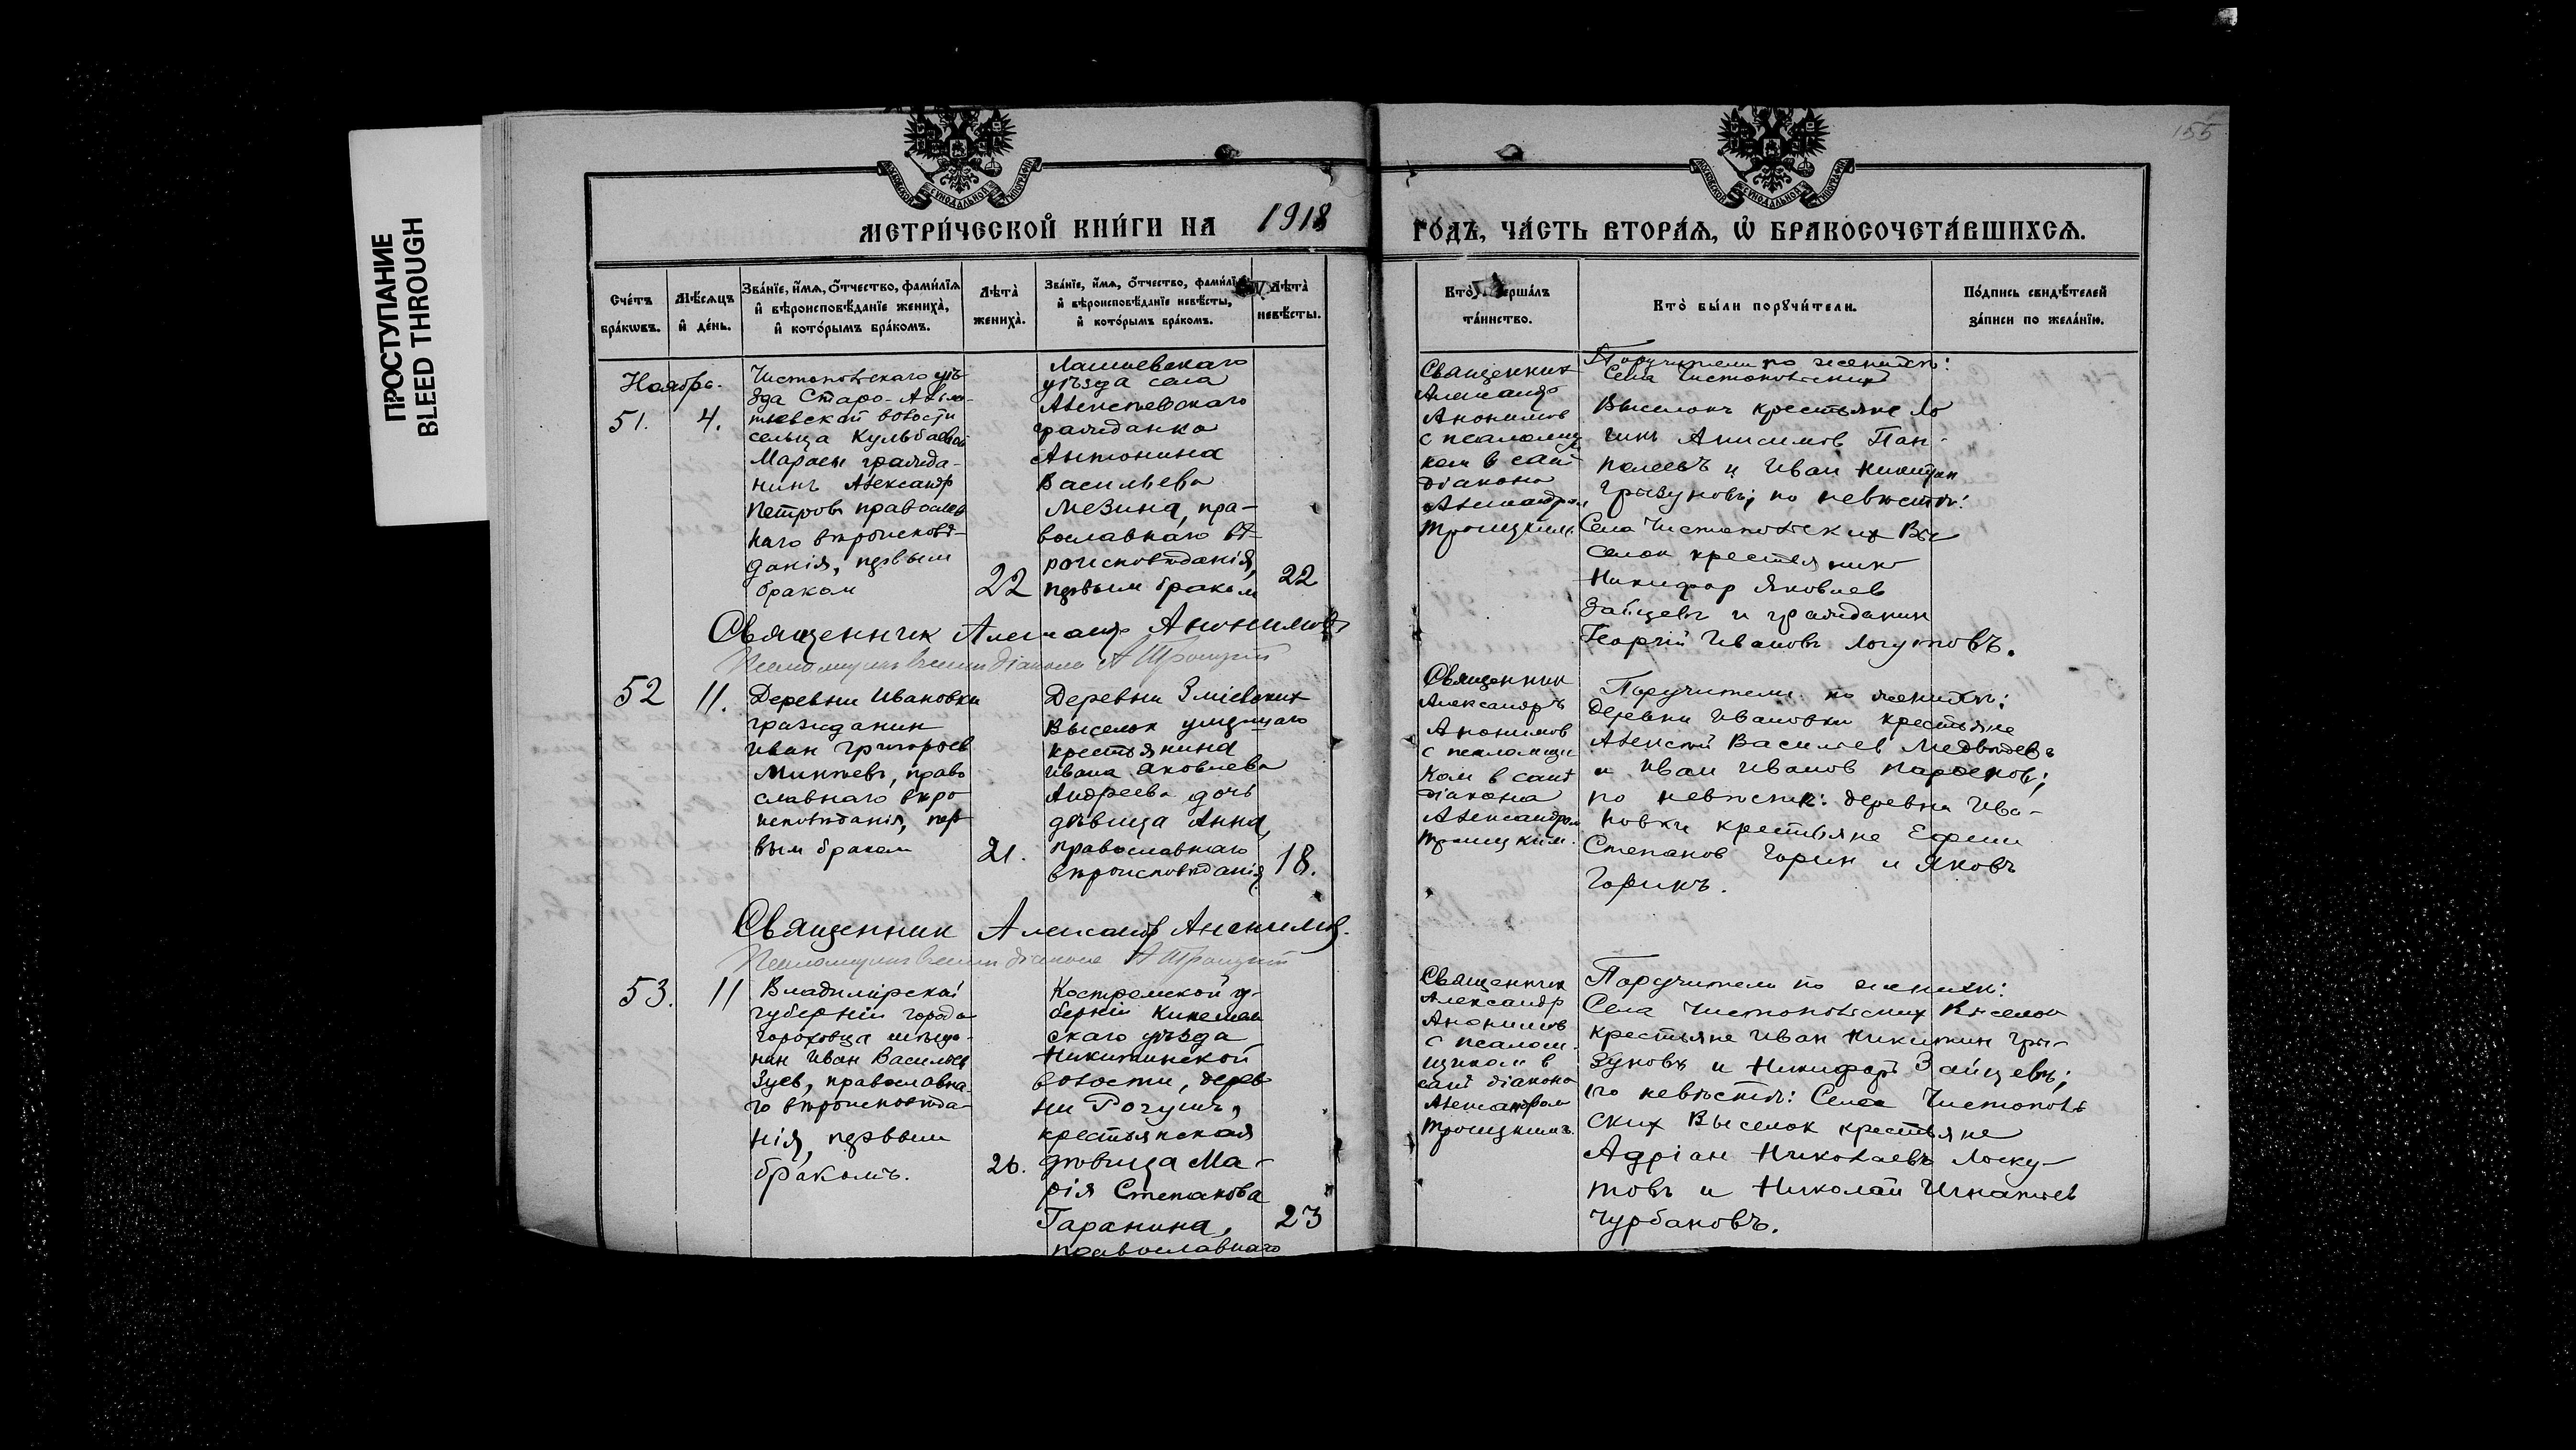 ПРОСТУПАНИЕ
BLEED THROUGH
155
МЕТРИ́ЧЕСКОЙ КНИ́ГИ НА 1918 ГО́ДЪ, ЧА́СТЬ ВТОРА́Я, Ѡ҆ БРАКОСОЧЕТА́ВШИХСЯ.
Сче́тъ бра́кѡвъ.
Мѣ́сяцъ и҆ де́нь.
Зва́нїе, и҆́мя, ѻ҆́тчество, фами́лїя
и҆ вѣроисповѣ́данїе жениха̀,
и҆ кото́рымъ бра́комъ.
Лѣта̀ жениха̀.
Зва́нїе, и҆́мя, ѻ҆́тчество, фами́лїя
и҆ вѣроисповѣ́данїе невѣ́сты,
и҆ кото́рымъ бра́комъ.
Лѣта̀ невѣ́сты.
Кто̀ соверша́лъ
та́инство.
Кто̀ бы́ли порꙋчи́тели.
По́дпись свидѣ́телей
за́писи по жела́нїю.
Ноябрь.
51.
4.
Чистопольскаго уѣ-
зда Старо-
волости
сельца Кульбаевой
Марасы гражда-
нинъ Александр
Петровъ православ
наго вѣроисповѣ-
данія, первым
браком
22
Лаишевскаго
уѣзда села
Алексѣевскаго
гражданка
Антонина
Васильева
Мезина, пра-
вославнаго вѣ-
роисповѣданія,
первым браком
22
Священник
Александр
Анонимов
с псаломщи
ком в санѣ
діакона
Александром
Троицким.
Поручители по женихѣ:
Села Чистопольских
Выселокъ крестьяне Ло
гинъ Анисимов Пан-
телеевъ и Иван Никитин
Грызуновъ; по невѣстѣ:
Села Чистопольских Вы
селок крестьянин
Никифор Яковлев
Зайцевъ и гражданин
Георгій Ивановъ Логутовъ.
Священник Александр Анонимовъ
Псаломщикъ в санѣ діакона А Троицкій
52
11.
Деревни Ивановки
гражданин
Иван Григорьев
Минѣевъ, право
славнаго вѣро
исповѣданія, пер
вым браком
21.
Деревни Зміевских
Выселок умершаго
крестьянина
Ивана Яковлева
Андреева дочь
дѣвица Анна,
православнаго
вѣроисповѣданія
18.
Священник
Александръ
Анонимов
с псаломщи
ком в санѣ
діакона
Александром
Троицким.
Поручители по женихѣ:
Деревни Ивановки крестьяне
Алексѣй Васильев Медвѣдевъ
и Иван Иванов Парфенов;
по невѣстѣ: деревни Ива-
новки крестьяне Ефим
Степанов Горин и Яковъ
Горинъ.
Священник Александр Анонимов.
Псаломщикъ в санѣ діакона А Троицкій
53.
11
Владимірской
губерніи города
Гороховца мѣща-
нин Иван Васильев
Зуев, православна-
го вѣроисповѣда-
нія, первым
бракомъ.
26.
Костромской гу-
берніи Кинешем
скаго уѣзда
Никитинской
волости, дерев
ни
крестьянская
дѣвица Ма-
рія Степанова
Гаранина,
православнаго
23
Священник
Александр
Анонимов
с псалом-
щиком в
санѣ діакона
Александром
Троицкимъ.
Поручители по женихѣ:
Села Чистопольских Выселок
крестьяне Иван Никитин Гры-
зуновъ и Никифоръ Зайцевъ;
по невѣстѣ: Села Чистополь
ских Выселок крестьяне
Адріан Николаевъ Лоску-
товъ и Николай Игнатьев
Чурбановъ.